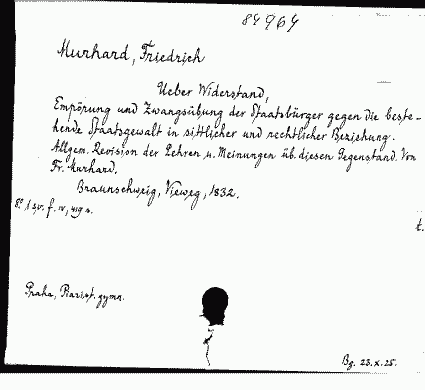 84964
Murhard, Friedrich
Ueber Widerstand,
Empörung und Zwangsübung der Staatsbürger gegen die beste-
hende Staatsgewalt in sittlicher und rechtlicher Beziehung.
Allgem. Revision der Lehren u. Meinungen üb. diesen Gegenstand. Von
Fr. Murhard.
Braunschweig, Vieweg, 1832.
8º 1 sv. f. IV, 419 s.
t.
Praha, Piarist. gymn.
Bg. 23.X.25.